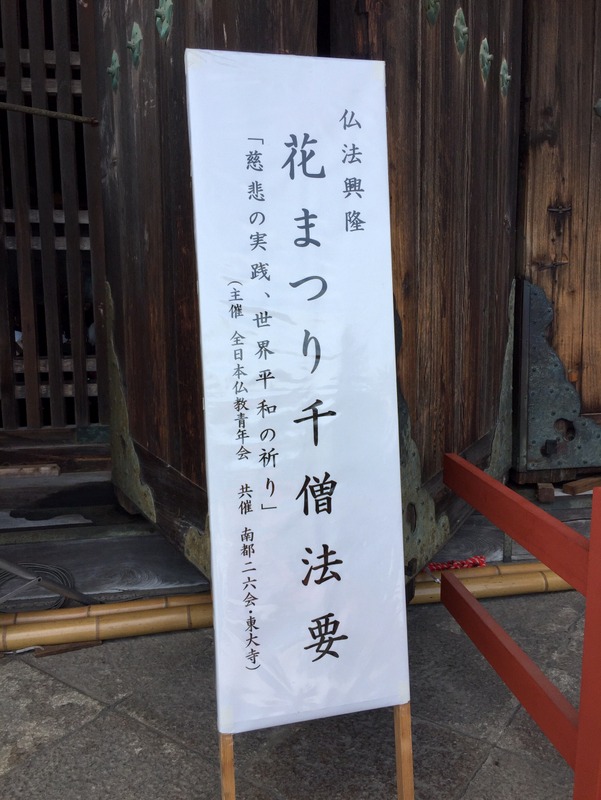 仏法興隆
花まつり千僧法要
「慈悲の実践、世界平和の祈り」
(主催 全日本仏教青年会 共催 南都二六会・東大寺)